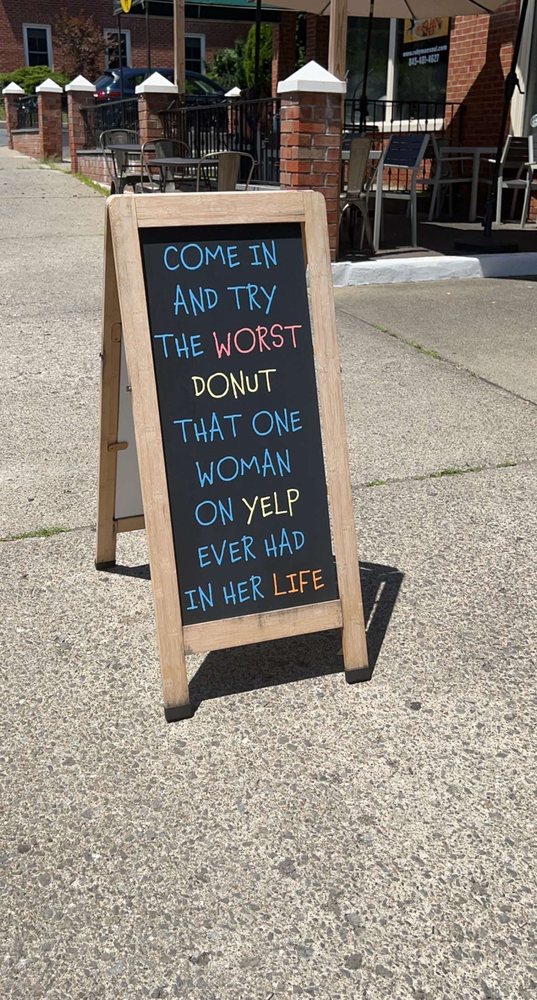 COME IN
AND TRY
THE WORST
DONUT
THAT ONE
WOMAN
ON YELP
EVER HAD
IN HER LIFE